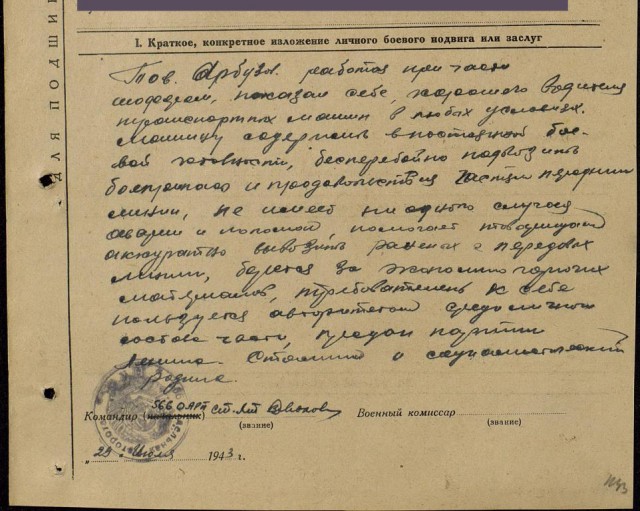 ДЛЯ ПОДШИ
I. Краткое, конкретное изложение личного боевого подвига или заслуг
Тов. Арбузов работая при части
шофером, показал себе хорошего водителя
транспортных машин в любых условиях.
Машину содержит в постоянной бое-
вой готовности, бесперебойно подвозить
боеприпасы и продовольствия частям передним
линии, не имеет ни одного случая
аварии и поломой, помогает товарищам
аккуратно вывозить раненых с передовых
линии, борется за экономию горючих
материалов, требователен к себе
пользуется авторитетом среди личного
состава части, предан партии
Ленина. Сталина и социалистический
родине.
566 ОАРП
Командир (начальник) ст. лт
Военный комиссар
(звание)
(звание)
„29" июля 1943 г.